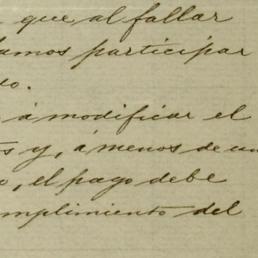 que al fallar
amos participar
o.
á modificar el
s y, á menos de un
o, el pago debe
mplimiento del